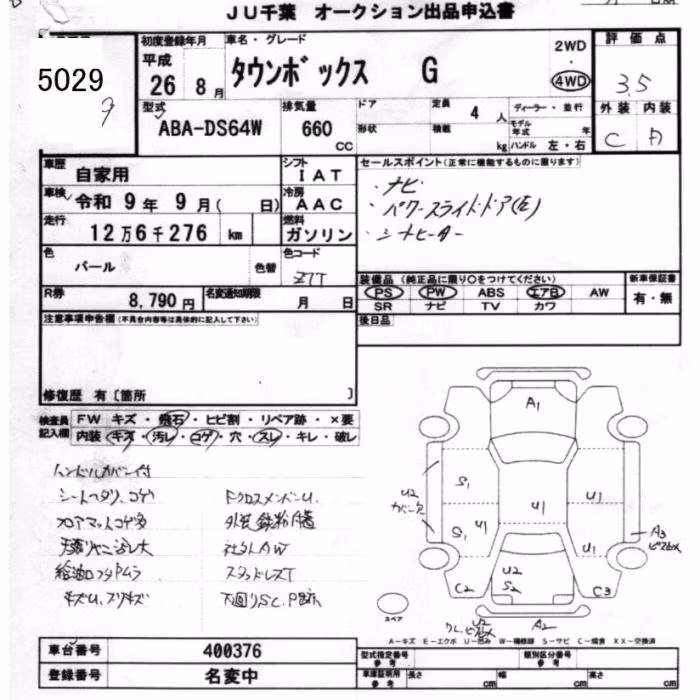 JU千葉 オークション出品申込書
5029
初度登録年月
平成
26 8月
車名・グレード
タウンボックス G
2WD
・
4WD
評価点
3.5
外装 内装
C A
型式
ABA-DS64W
排気量
660
CC
ドア
形状
定員
4 人
積載
kg
ディーラー・並行
モデル年式 年
ハンドル 左・右
車歴
自家用
シフト
IAT
車検
令和 9年 9月( 日)
冷房
AAC
走行
12万6千276 km
燃料
ガソリン
色
パール
色替
色コード
Z7T
R券
8,790円
名変通知期限
月 日
セールスポイント(正常に機能するものに限ります)
・ナビ
・パワースライドドア(左)
・シートヒーター
装備品 (純正品に限り○をつけてください)
PS PW ABS エアB AW
SR ナビ TV カワ
新車保証書
有・無
後日品
注意事項申告欄(不具合内容等は具体的に記入して下さい)
修復歴 有〔箇所 〕
検査員
記入欄
FW キズ・飛石・ヒビ割・リペア跡・×要
内装 キズ・汚レ・コゲ・穴・スレ・キレ・破レ
ハンドルカバー付
シートヘタリ、コゲ
フロアマットコゲ多
天張りヤニ汚レ大
給油口フタPムラ
キズU、スリキズ
FクロスメンバーU
外装鉄粉付着
社外AW
スタッドレスT
下廻りSC、P跡
A1
U2
カバー欠
S1
S1
U1
U1
U1
U1
A3
ビス欠
U2
S2
C2
C3
U2
A2
スペア
A-キズ E-エクボ U-凹み W-補修跡 S-サビ C-腐食 XX-交換済
車台番号
400376
登録番号
名変中
型式指定番号
参考
類別区分番号
参考
車庫証明用
参考
長さ cm
幅 cm
高さ cm